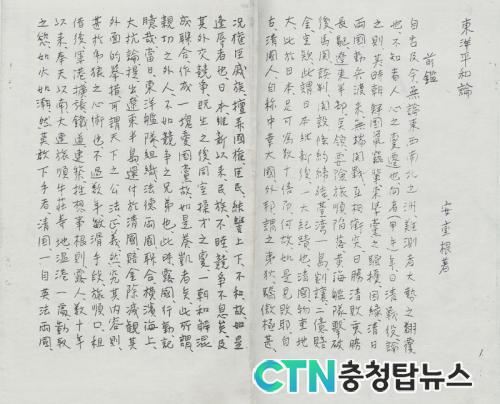 東洋平和論
安重根著
前鑑
自古及今無論東西南北之洲難測者大勢之翻覆
也不知者人心之變遷也向者(甲午年)日清戰役論
之則其時朝鮮國鼠竊輩東學黨之騷擾因緣清日
兩國動兵渡來無端開戰互相衝突日勝清敗乘勝
長驅遼東半部占領要險旅順陷落黃海艦隊擊破
後馬關談判開設條約締結臺灣一島割讓二億賠
金定款此謂日本維新後一大紀蹟也清國物重地
大比於日本足可爲數十倍而何故如是見敗耶自
古清國人自稱中華大國外邦謂之夷狄驕傲極甚
況權臣戚族擅弄國權臣民結讐上下不和故如是
逢辱者也日本維新以來民族不睦競爭不息矣及
其外交競爭旣生之後同室操戈之變一朝和解混
成聯合作成一塊愛國黨故如是奏凱者矣此所謂
親切之外人不如競爭之兄弟也此時露國行動記
憶哉當日東洋艦隊組織法德兩國聯合橫濱海上
大抗論提出遼東半島還付於清國賠金除減觀其
外面的擧措可謂天下之公法正義然究其內容則
甚於虎狼之心術也不過數年敏滑手段旅順口租
借後軍港擴張鐵道建築推想事根則露人數十年
以來奉天以南大連旅順牛莊等地溫港一處勒取
之慾如火如潮然莫敢下手者清國一自英法兩國
CTN충청탑뉴스